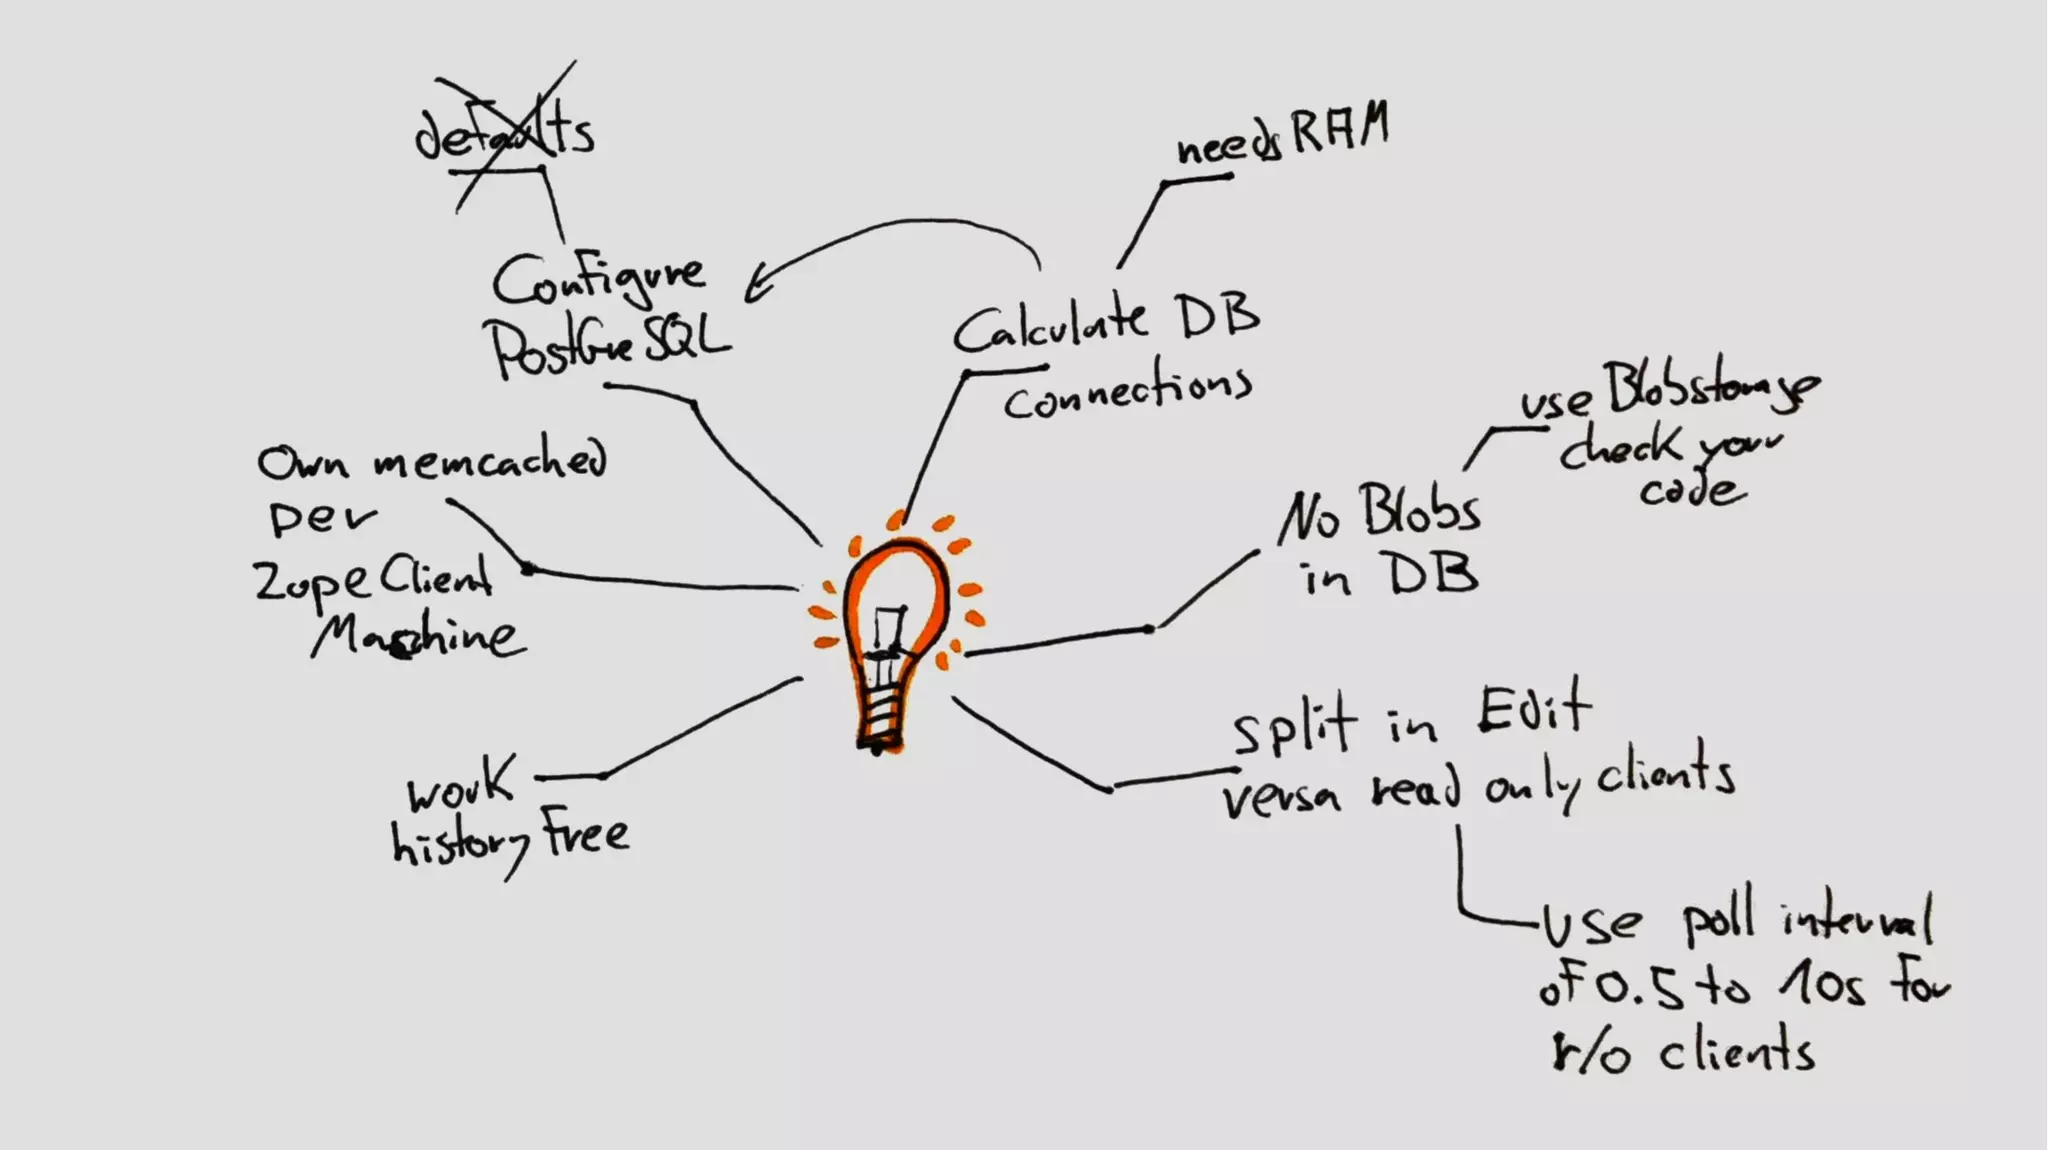 defaults
needs RAM
Configure
PostGreSQL
Calculate DB
connections
use Blobstorage
check your
code
Own memcached
per
Zope Client
Maschine
No Blobs
in DB
split in Edit
versa read only clients
work
history free
use poll interval
of 0.5 to 10s for
r/o clients